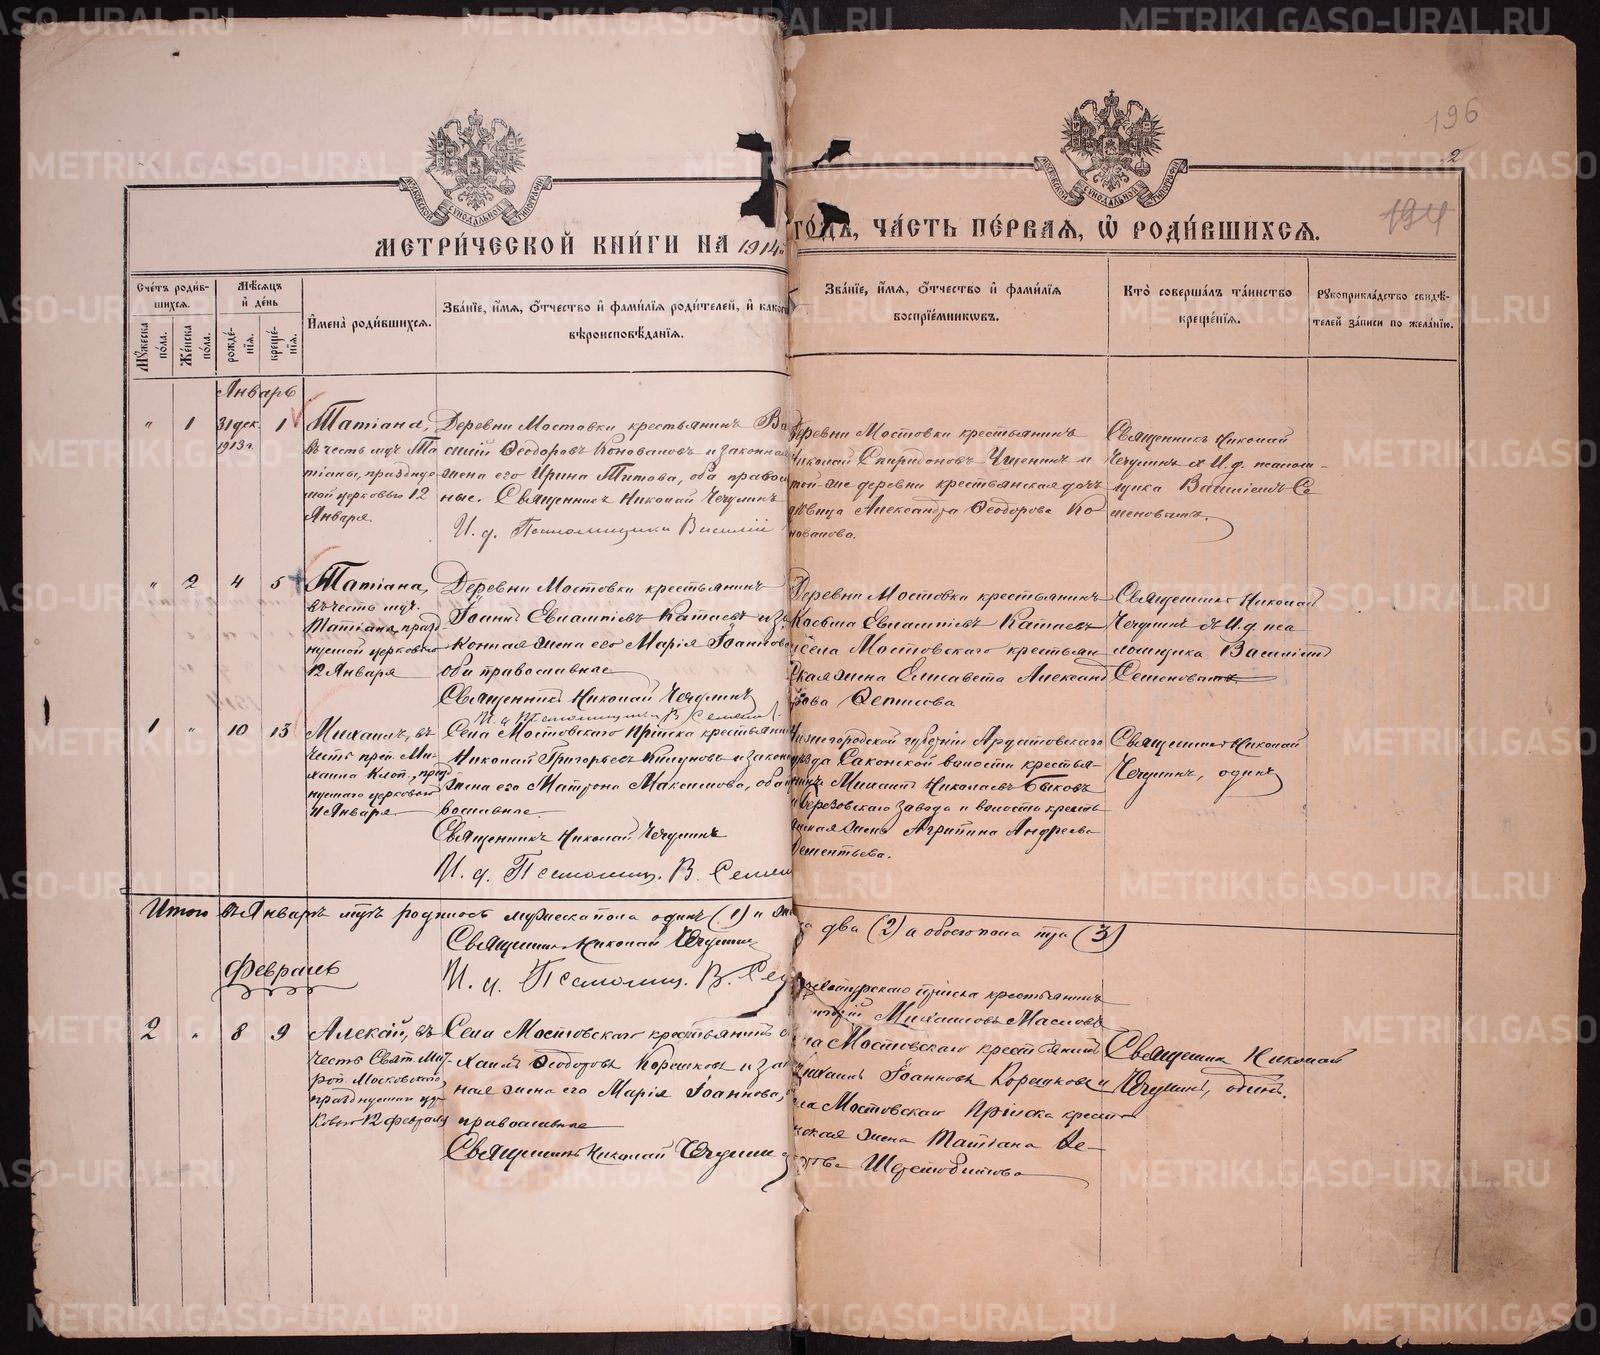 196
2
194
МЕТРИ́ЧЕСКОЙ КНИ́ГИ НА 1914
ГО́ДЪ, ЧА́СТЬ ПЕ́РВАѦ, Ѽ РОДИ́ВШИХСѦ.
Сче́тъ роди́в-
шихсѧ.
Мꙋ́жеска по́ла.
Же́нска по́ла.
Мѣ́сѧцъ
и҆ де́нь
рожде́-
нїѧ.
креще́-
нїѧ.
И҆мена̀ роди́вшихсѧ.
Зва́нїе, и҆́мѧ, ѻ҆́тчество и҆ фами́лїѧ роди́телей, и҆ како́г
вѣроисповѣ́данїѧ.
Зва́нїе, и҆́мѧ, ѻ҆́тчество и҆ фами́лїѧ
воспрїе́мникѡвъ.
Кто̀ соверша́лъ та́инство
креще́нїѧ.
Рꙋкоприкла́дство свидѣ́-
телей за́писи по жела́нїю.
Январь
" 1 31 дек. 1913 г. 1
Татіана,
въ честь муч. Та
тіаны, праздную
мой церковью 12
Января.
Деревни Мостовки крестьянинъ Ва
силій Ѳеодоровъ Коновалов и законная
жена его Ирина Титова, оба правос
ные. Священникъ Николай Чечулинъ
И. д. Псаломщика Василій
Деревни Мостовки крестьянинъ
Николай Спиридоновъ и
той-же деревни крестьянская доч
дѣвица Александра Ѳеодорова Ко
новалова.
Священникъ Николай
Чечулинъ съ И. д. псалом-
щика Василіемъ Се
меновымъ.
" 2 4 5
Татіана,
въ честь муч.
Татіаны, празд
нуемой церковью
12 Января
Деревни Мостовки крестьянинъ
Іоаннъ Евлампіевъ Катаевъ и за
конная жена его Марія Іоаннова
оба православные
Священникъ Николай Чечулинъ
И. д. Псаломщика В. Семен
Деревни Мостовки крестьянинъ
Косьма Евлампіевъ Катаевъ
и села Мостовскаго крестьян
ская жена Елисавета Александ
рова
Священникъ Николай
Чечулинъ съ И. д. пса
ломщика Василіемъ
Семеновымъ
1 " 10 13
Михаилъ, въ
честь преп. Ми-
хаила Клоп., празд
нуемаго церковью
11 Января.
Села Мостовскаго Пріиска крестьянинъ
Николай Григорьевъ и законн
жена его Матрона Максимова, оба
вославные.
Священникъ Николай Чечулинъ
И. д. Псаломщ. В. Семен
Нижегородской губерніи Ардатовскаго
уѣзда Саконской волости крестья-
нинъ Михаилъ Николаевъ Быковъ
и Березовскаго завода и волости кресть
янская жена Агрипина Андреева
Дементьева.
Священникъ Николай
Чечулинъ, одинъ
Итого въ Январѣ мцѣ родилось мужеска пола одинъ (1) и жен
ка два (2) и обоего пола три (3)
Священникъ Николай Чечулинъ
И. д. Псаломщ. В. Сем
Февраль
2 " 8 9
Алексій, въ
честь Свят. Мит-
роп Московскаго,
празднуемаго цер
ковью 12 февраля
Села Мостовскаго крестьянинъ
хаилъ Ѳеодоровъ Коршковъ и зак
ная жена его Марія Іоаннова,
православные
Священникъ Николай Чечулинъ
пріиска крестьянинъ
Михаиловъ Масловъ
села Мостовскаго крестьянинъ
Михаилъ Іоанновъ Коршковъ и
села Мостовскаго Пріиска кресть
янская жена Татіана Пе-
трова Шерстобитова
Священник Николай
Чечулинъ, одинъ.